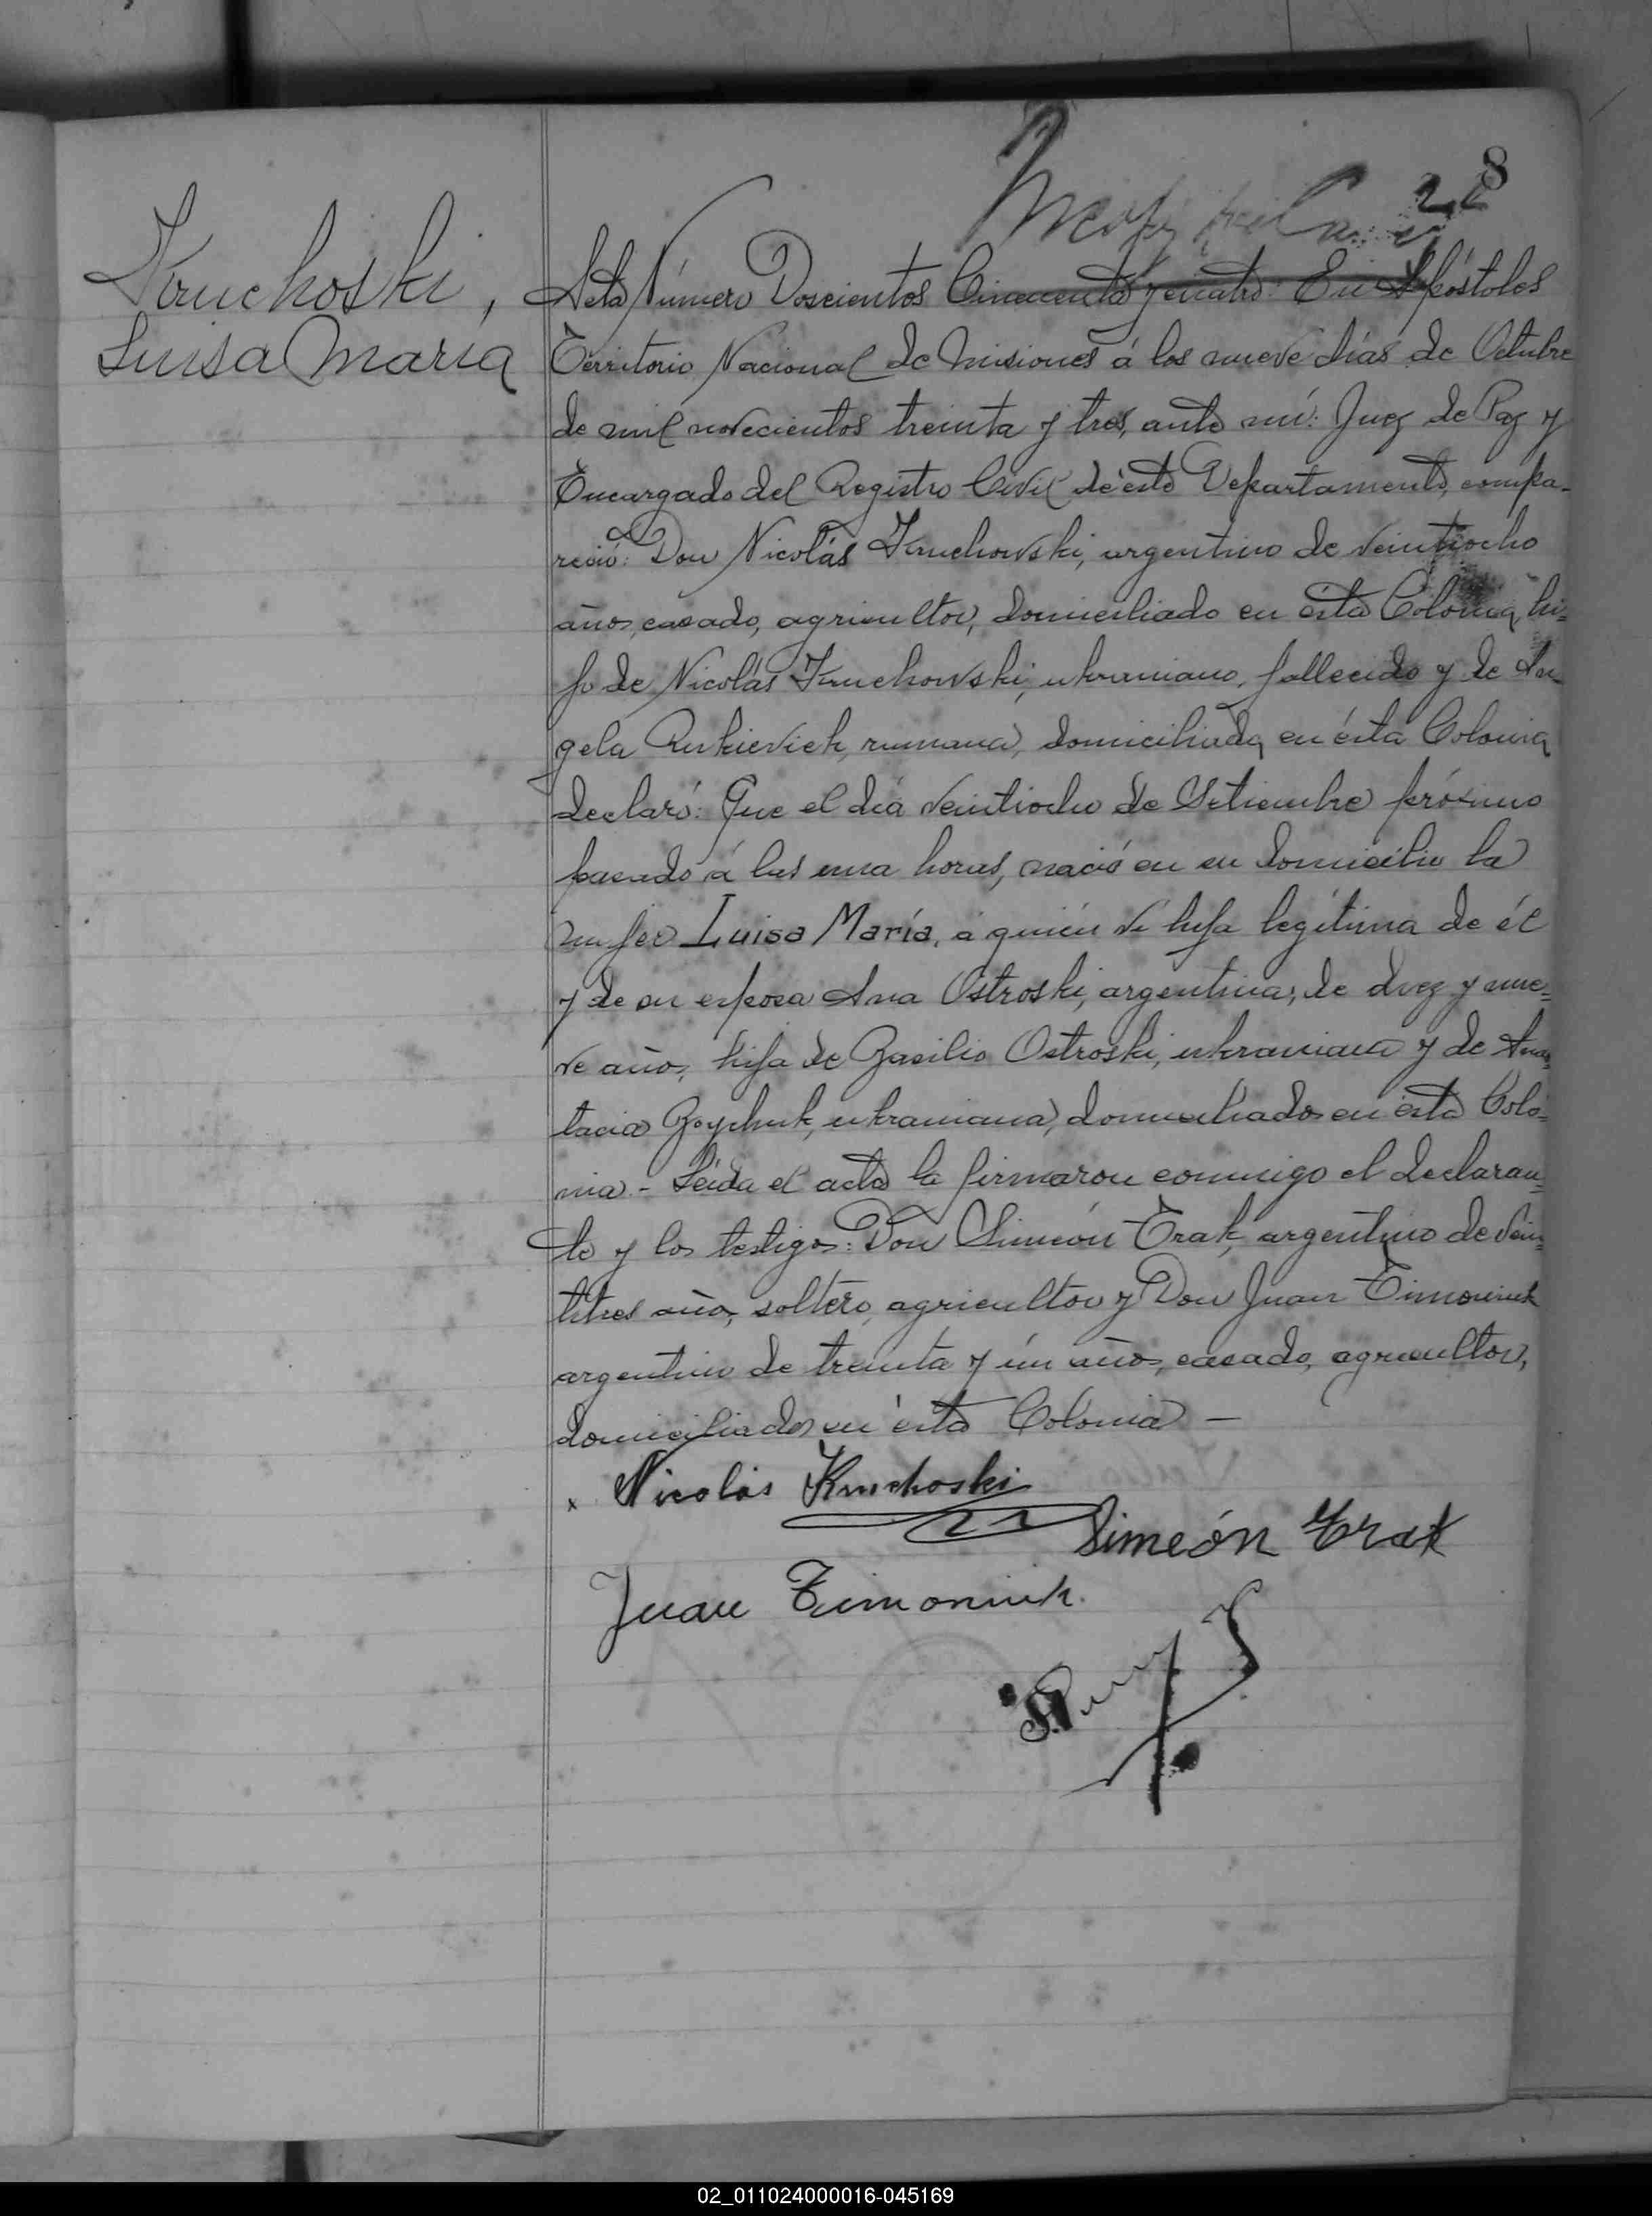 28
Kruchoski,
Luisa Maria
Acta Número Doscientos Cincuenta y cuatro: En Apóstoles
Territorio Nacional de Misiones á los nueve días de Octubre
de mil novecientos treinta y tres, ante mí: Juez de Paz y
Encargado del Registro Civil de éste Departamento, compa-
reció: Don Nicolás Kruchowski, argentino de veintiocho
años, casado, agricultor, domiciliado en ésta Colonia, hi=
jo de Nicolás Kruchowski, ukraniano, fallecido y de An-
gela Rukievich, rumana, domiciliada en ésta Colonia
declaró: Que el día veintiocho de Setiembre próximo
pasado á las una horas, nació en su domicilio la
mujer Luisa María, á quien vi hija legítima de él
y de su esposa Ana Ostroski, argentina, de diez y nue=
ve años, hija de Basilio Ostroski, ukraniano y de Anas
tacia Boychuk, ukraniana, domiciliados en ésta Colo=
nia - Leída el acta la firmaron conmigo el declaran=
te y los testigos: Don Simeón Trak, argentino de vein=
titres años, soltero, agricultor y Don Juan Timoniuk
argentino de treinta y un años, casado, agricultor,
domiciliados en ésta Colonia —
x Nicolás Kruchoski
Simeón Trak
Juan Timoniuk.
02_011024000016-045169